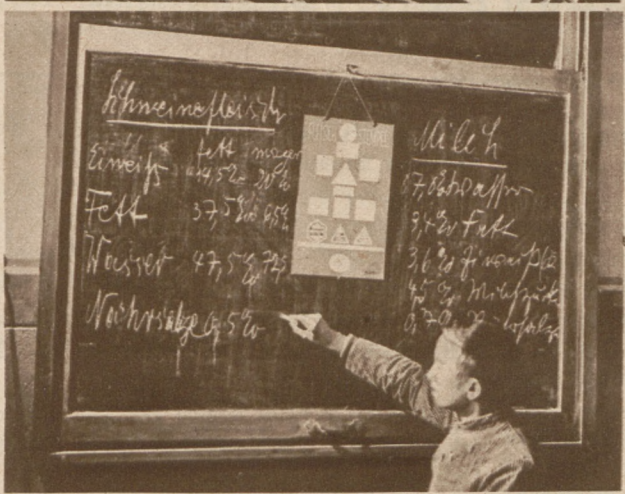 Schweinefleisch
fett mager
Eiweiß 14,5% 20%
Fett 37,5%
Wasser 47,5%
Nährsalze 0,5%
Milch
87,8% Wasser
3,4% Fett
3,6%
4,5% Milchzuck
0,7%